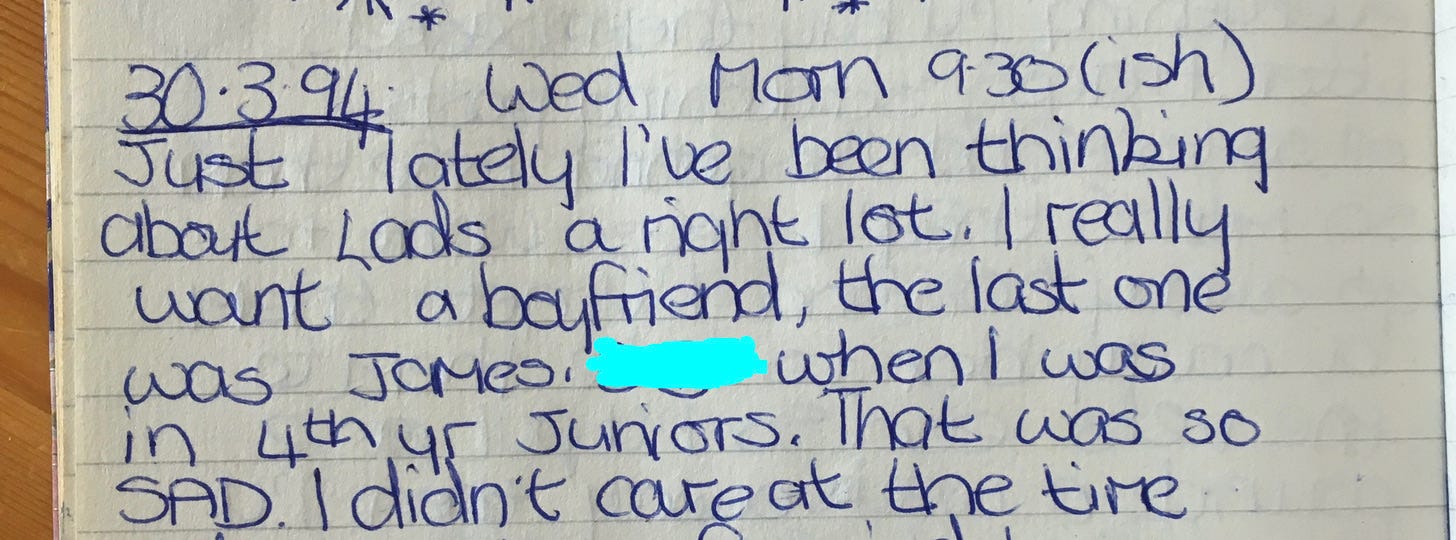 30.3.94. Wed Morn 9.30(ish)
Just lately I've been thinking
about Lads a right lot. I really
want a boyfriend, the last one
was James. when I was
in 4th yr Juniors. That was so
SAD. I didn't care at the time